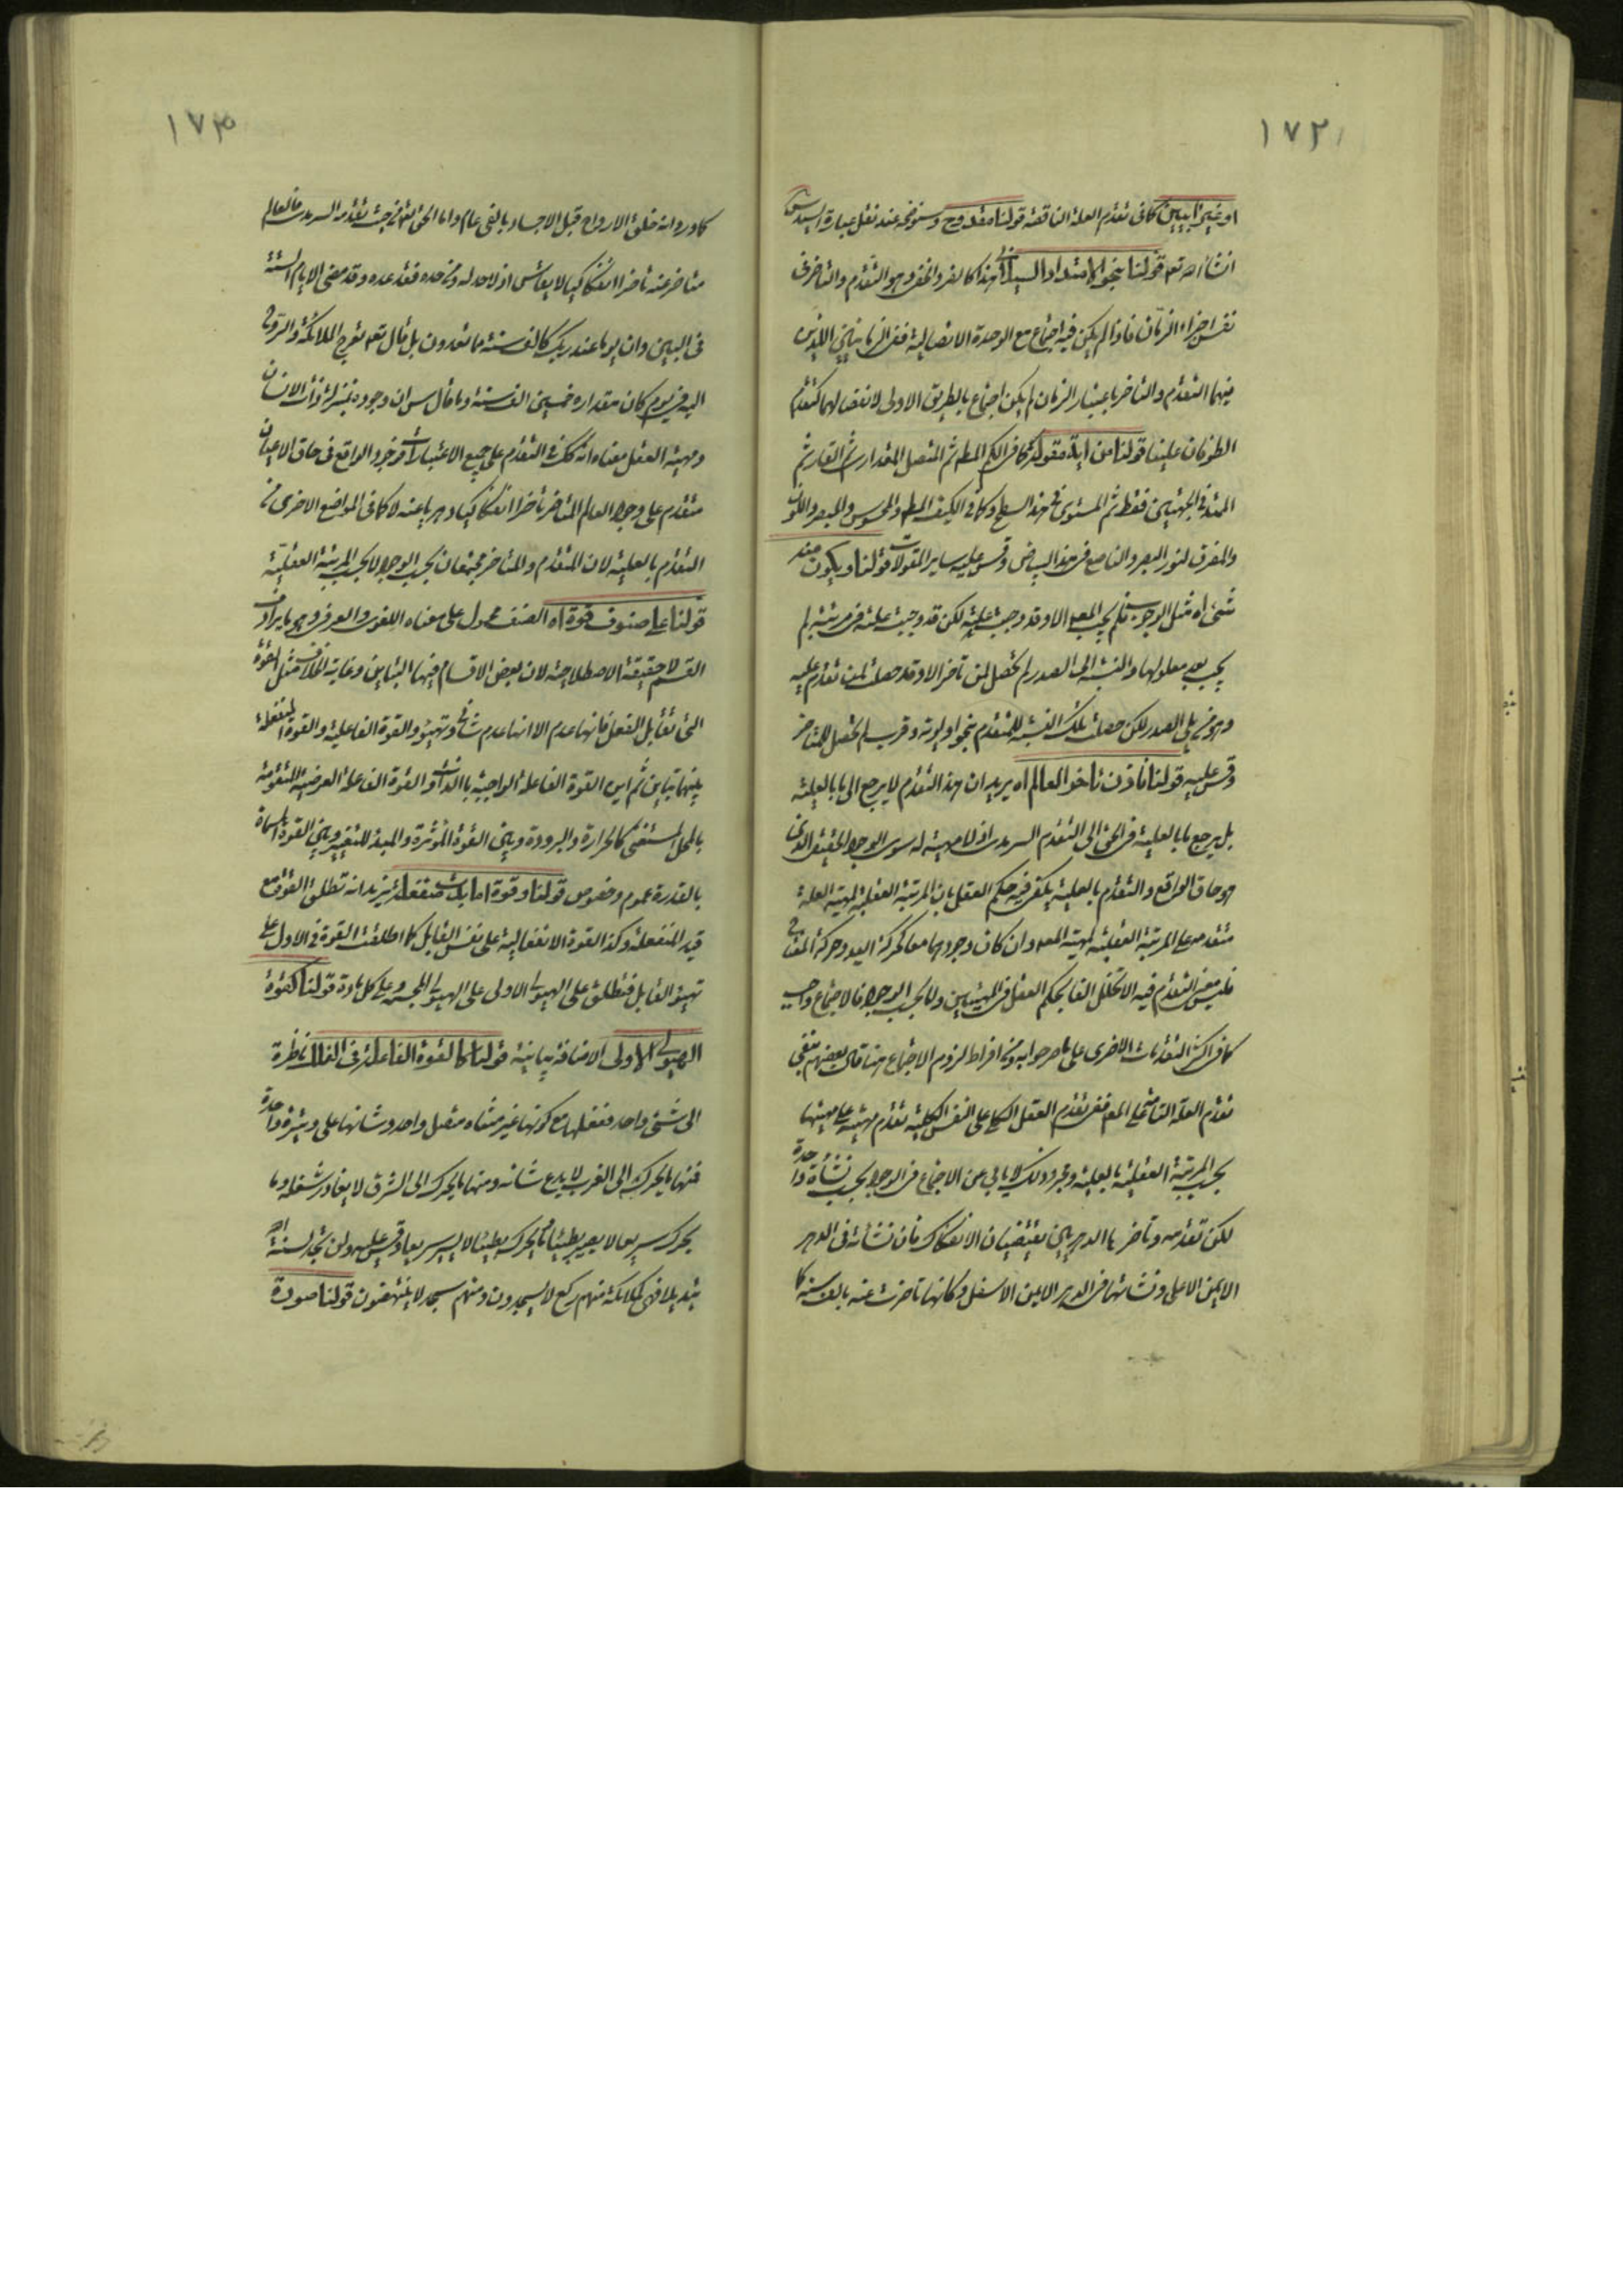 ١٧٢
او غير آبيين كما فى تقدم العلة الناقصة قولنا مقدوح وسنوضحه عند نقل عبارة السيد س
انشاء الله تعم قولنا بنحو الامتداد السيلانى هذا كالفرد الخفى وهو التقدم والتاخر فى
نفس اجزاء الزمان فاذا لم يكن فيه اجتماع مع الوحدة الاتصالية ففى الزمانيين اللذين
فيهما التقدم والتاخر باعتبار الزمان لم يكن اجتماع بالطريق الاولى لانفصالهما كتقدم
الطوفان علينا قولنا من اية مقولة كما فى الكم المطلق ثم المتصل المقدارى ثم القار ثم
الممتد فى الجهتين فقط ثم المستوى ثم هذا السطح وكما فى الكيف المط والمحسوس والمبصر واللون
والمفرق لنور البصر والناصع فى هذا البياض وقس عليه ساير المقولات قولنا ويكون منه
شىء اه مثل الوجوب فلم يجب المعلول الا وقد وجبت علته لكن قد وجبت علته فى مرتبة لم
يجب بعد معلولها والنسبة الى الصدر لم تحصل لمن تاخر الا وقد حصلت لمن تقدم عليه
وهو من يلى الصدر لكن حصلت تلك النسبة للمتقدم بنحو اولوية وقرب لم تحصل للمتاخر
وقس عليه قولنا فاذن تاخر العالم اه يريد ان هذا التقدم لا يرجع الى ما بالعلية
بل يرجع ما بالعلية فى الحق الى التقدم السرمدى اذ لا مهية له سوى الوجود الحقيقى الذى
هو حاق الواقع والتقدم بالعلية يكفى فيه حكم العقل بان المرتبة العقلية لمهية العلة
متقدمة على المرتبة العقلية لمهية المعلول وان كان وجودهما معا كحركة اليد وحركة المفتاح
فليس معنى التقدم فيه الا تخلل الفا بحكم العقل فى المهيتين واما بحسب الوجود فالاجتماع واجب
كما فى اكثر التقدمات الاخرى على ما صرحوا به ومن افراط لزوم الاجتماع هنا قال بعضهم بنفى
تقدم العلة التامة على المعلول ففى تقدم العقل الكلى على النفس الكلية تقدم مهيته على مهيتها
بحسب المرتبة العقلية بالعلية ومجرد ذلك لا يابى عن الاجتماع فى الوجود بحسب نشأة واحدة
لكن تقدمه وتاخرها الدهريين يقتضيان الانفكاك فان نشاته فى الدهر
الايمن الاعلى ونشاتها فى الدهر الايمن الاسفل وكانها تاخرت عنه بالف سنة كما
١٧٣
كما ورد انه خلق الارواح قبل الاجساد بالفى عام واما الحق تعم فمن حيث تقدمه السرمدى فالعالم
متاخر عنه تاخرا انفكاكيا لا يقاس اذ لا حد له ومن حده فقد عده وقد مضى الايام الستة
فى البين وان يوما عند ربك كالف سنة مما تعدون بل قال تعم تعرج الملائكة والروح
اليه فى يوم كان مقداره خمسين الف سنة وما قال س ان وجوده بمنزلة ذات الانسان
ومهية العقل معناه انه كك فى التقدم على جميع الاعتبارات فوجود الواقع فى حاق الاعيان
متقدم على وجود العالم المتاخر تاخرا انفكاكيا دهريا عنه لا كما فى المواضع الاخرى من
التقدم بالعلية لان المتقدم والمتاخر مجتمعان بحسب الوجود لا بحسب المرتبة العقلية
قولنا على صنوف قوة اه الصنف محمول على معناه اللغوى والعرفى وهو ما يرادف
القسم لا حقيقته الاصطلاحية لان بعض الاقسام فيها التباين وغاية الخلاف مثل القوة
التى تقابل الفعل فانها عدم الا انها عدم شانى وتهيؤ والقوة الفاعلية والقوة المنفعلة
بينهما تباين ثم اين القوة الفاعلة الواجبة بالذات والقوة الفاعلة العرضية المتقومة
بالمحل المستغنى كالحرارة والبرودة وبين القوة المؤثرة والمبدء للتغير وبين القوة المسماة
بالقدرة عموم وخصوص قولنا وقوة اما بدت منفعلة يريد انه تطلق القوة مع
قيد المنفعلة وكذا القوة الانفعالية على نفس القابل كما اطلقت القوة فى الاول على
تهيؤ القابل فتطلق على الهيولى الاولى على الهيولى المجسمة وعلى كل مادة قولنا كقوة
الهيولى الاولى الاضافة بيانية قولنا كالقوة الفاعلة فى الفلك ناظرة
الى شىء واحد ففعلها مع كونها غير متناه متصل واحد وشانها على وتيرة واحدة
فمنها ما يحرك الى الغرب لا يدع شانه ومنها ما يحرك الى الشرق لا يغادر شغله وما
يحرك سريعا لا يصير بطيئا وما يحرك بطيئا لا يسير سريعا وقس عليه ولن تجد لسنة الله
تبديلا فهى كملائكة منهم ركع لا يسجدون ومنهم سجد لا ينتصفون قولنا صورة